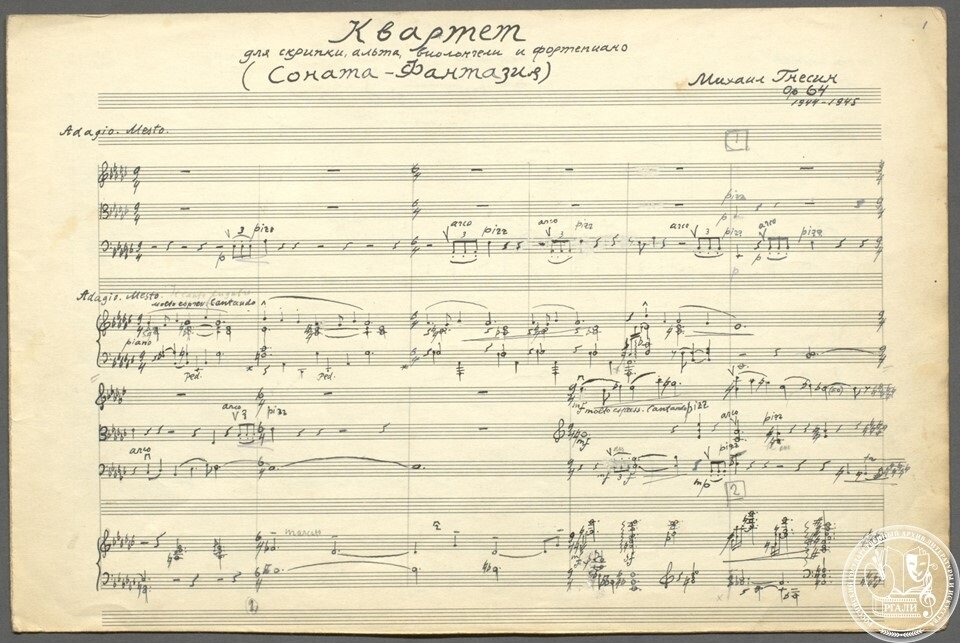 1
Квартет
для скрипки, альта, виолончели и фортепиано
(Соната-Фантазия)
Михаил Гнесин
Op 64
1944-1945
Adagio. Mesto.
1
pizz
arco pizz arco pizz arco pizz arco pizz
3 3 3 3
p p p
Adagio. Mesto.
molto espress. Cantando
piano
Ped. Ped.
mf molto espress. Cantando
arco pizz pizz arco pizz
3 mf
arco pizz
mf 3 f mp tr
2
marcato
2
РГАЛИ